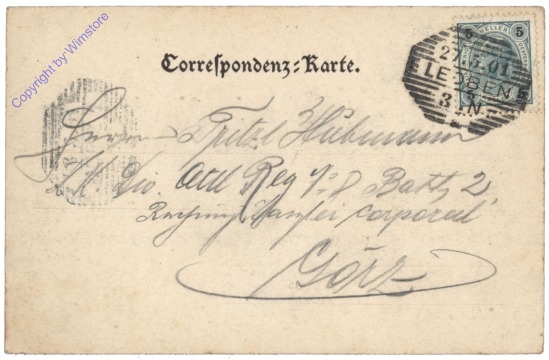 Copyright by Wimstore
5 HELLER 5
27.5.01
LEOBEN
3 N
5
Correspondenz-Karte.
Herrn Fritzl Hübmann
Div. Art Reg No 8 Batt 2
Rechnungs Kanzlei Corporal
Görz